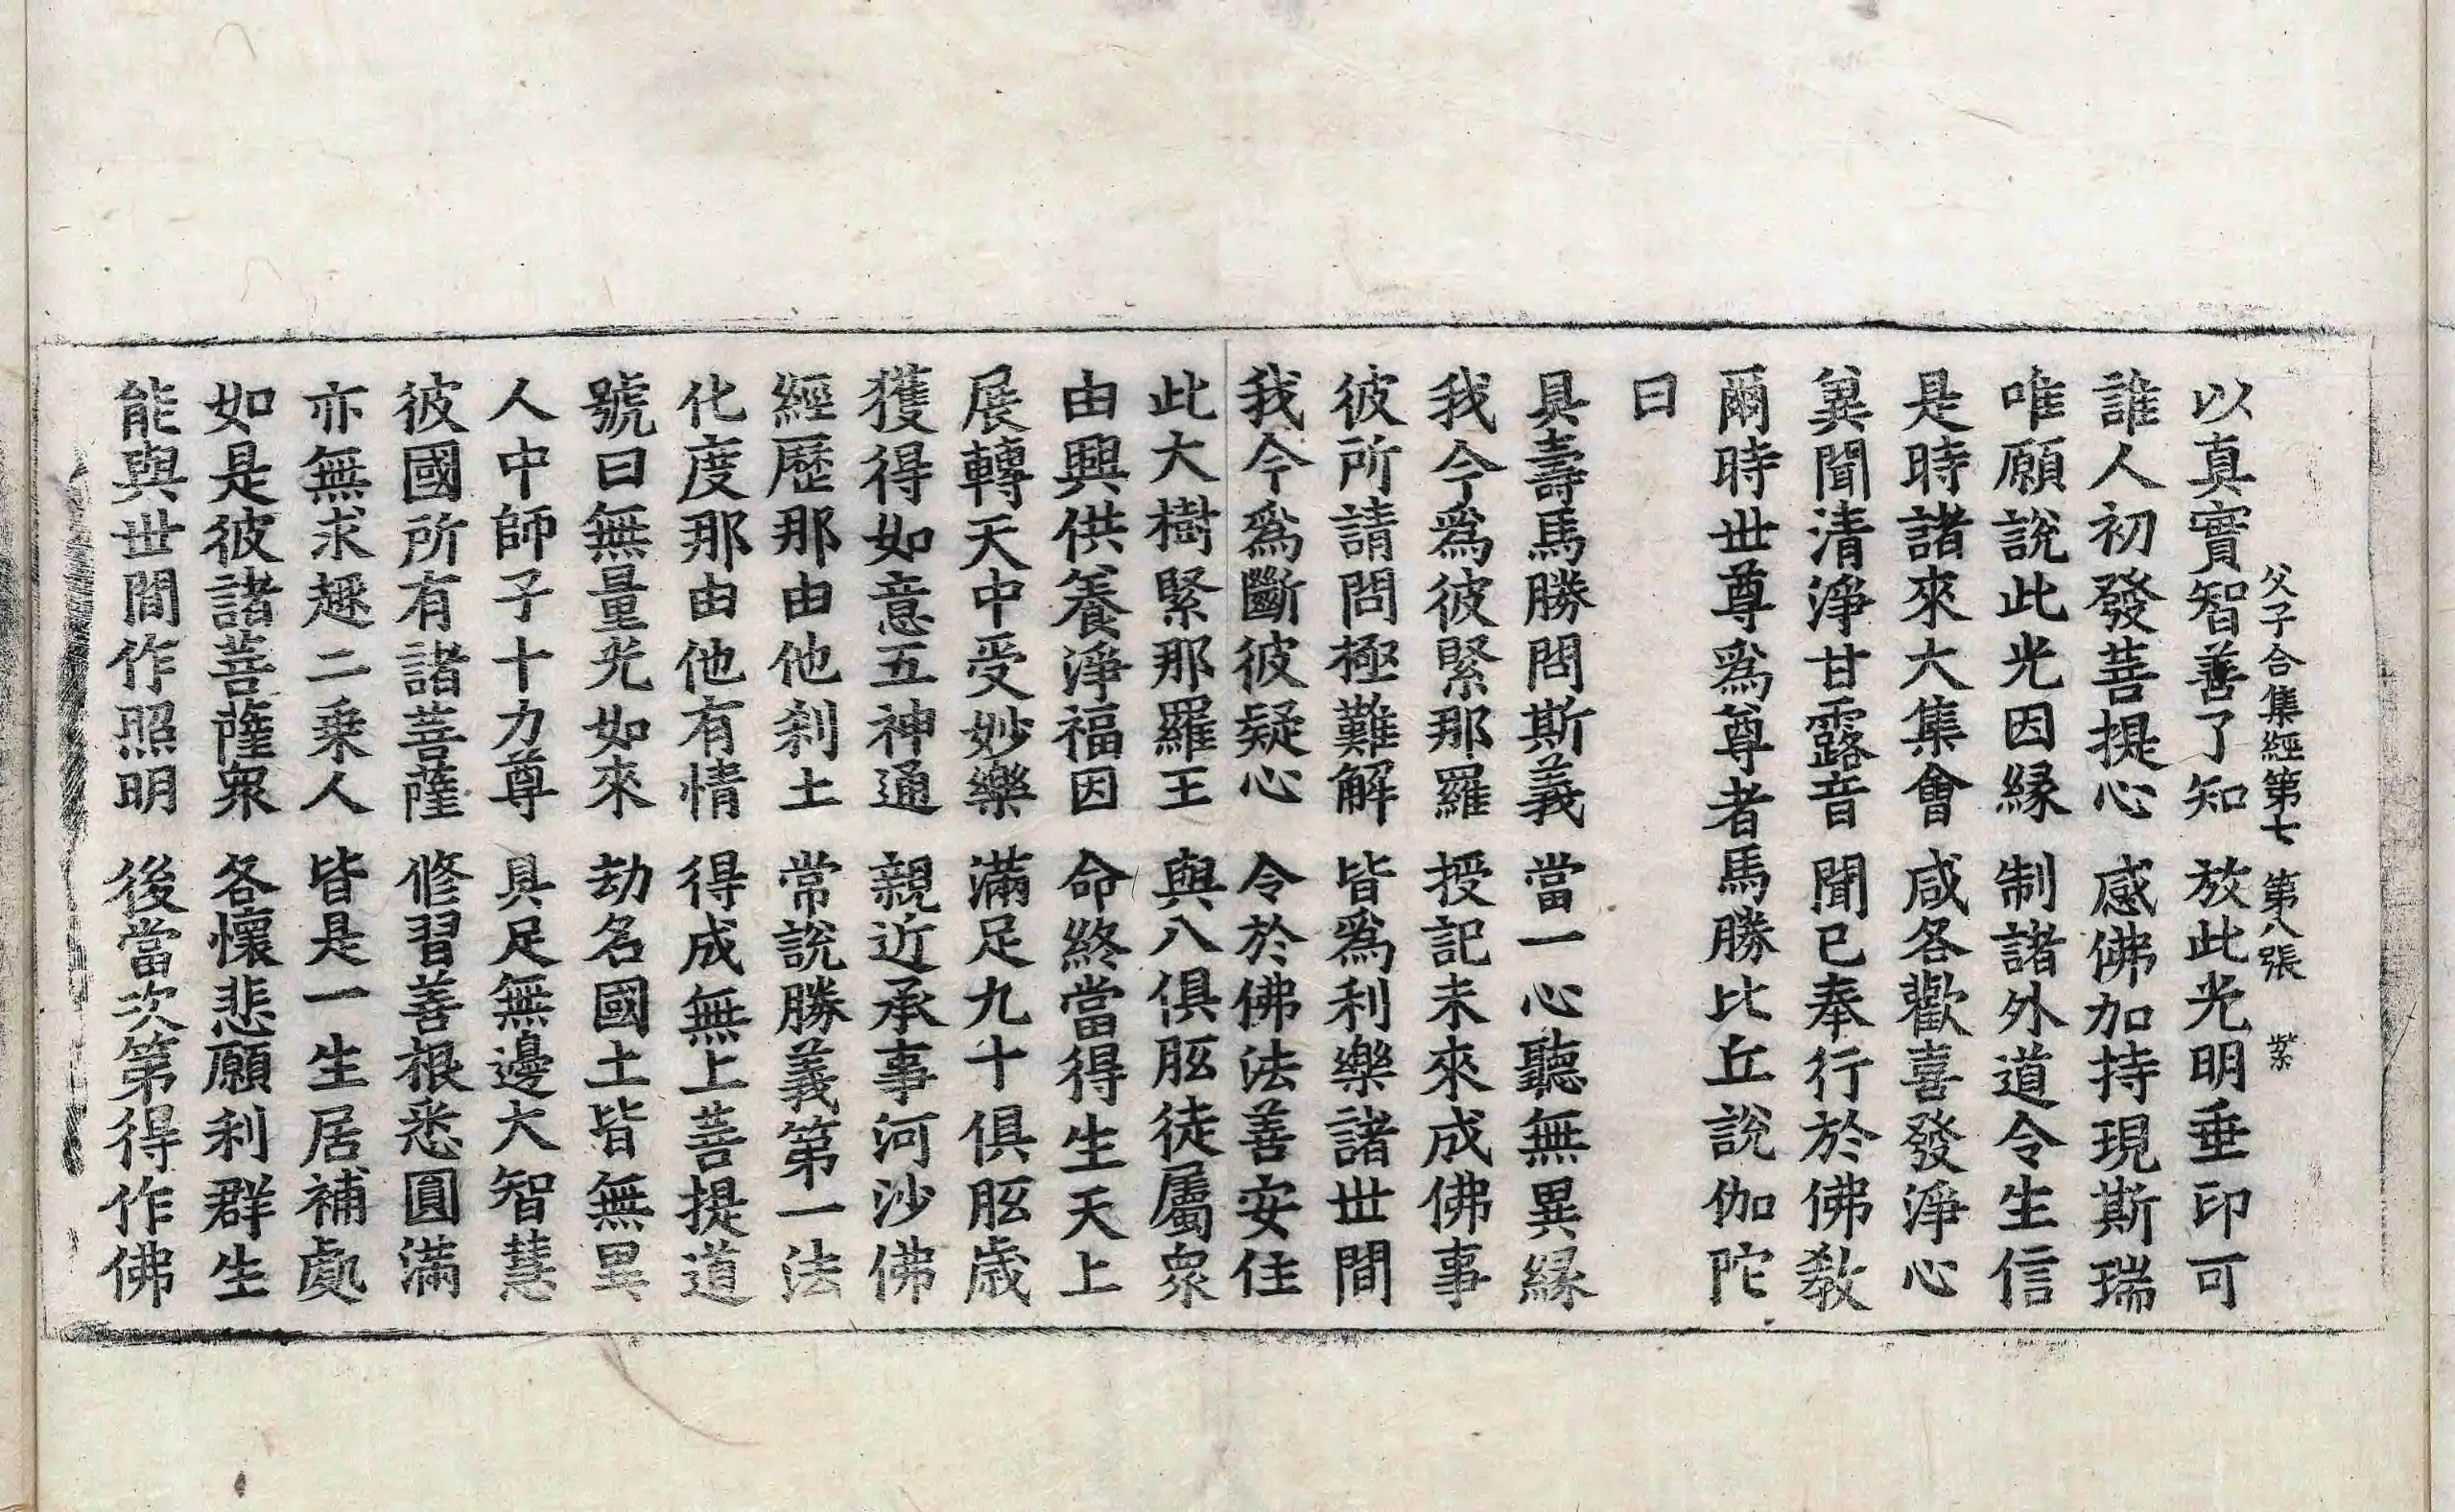 父子合集經第七 第八張 紫
以真實智善了知 放此光明垂印可
誰人初發菩提心 感佛加持現斯瑞
唯願說此光因緣 制諸外道令生信
是時諸來大集會 咸各歡喜發淨心
兾聞清淨甘露音 聞已奉行於佛教
爾時世尊爲尊者馬勝比丘說伽陀
曰
具壽馬勝問斯義 當一心聽無異緣
我今爲彼緊那羅 授記未來成佛事
彼所請問極難解 皆爲利樂諸世間
我今爲斷彼疑心 令於佛法善安住
此大樹緊那羅王 與八俱胝徒屬衆
由興供養淨福因 命終當得生天上
展轉天中受妙樂 滿足九十俱胝歲
獲得如意五神通 親近承事河沙佛
經歷那由他刹土 常說勝義第一法
化度那由他有情 得成無上菩提道
號曰無量光如來 劫名國土皆無異
人中師子十力尊 具足無邊大智慧
彼國所有諸菩薩 修習善根悉圓滿
亦無求趣二乗人 皆是一生居補處
如是彼諸菩薩衆 各懷悲願利群生
能與世間作照明 後當次第得作佛